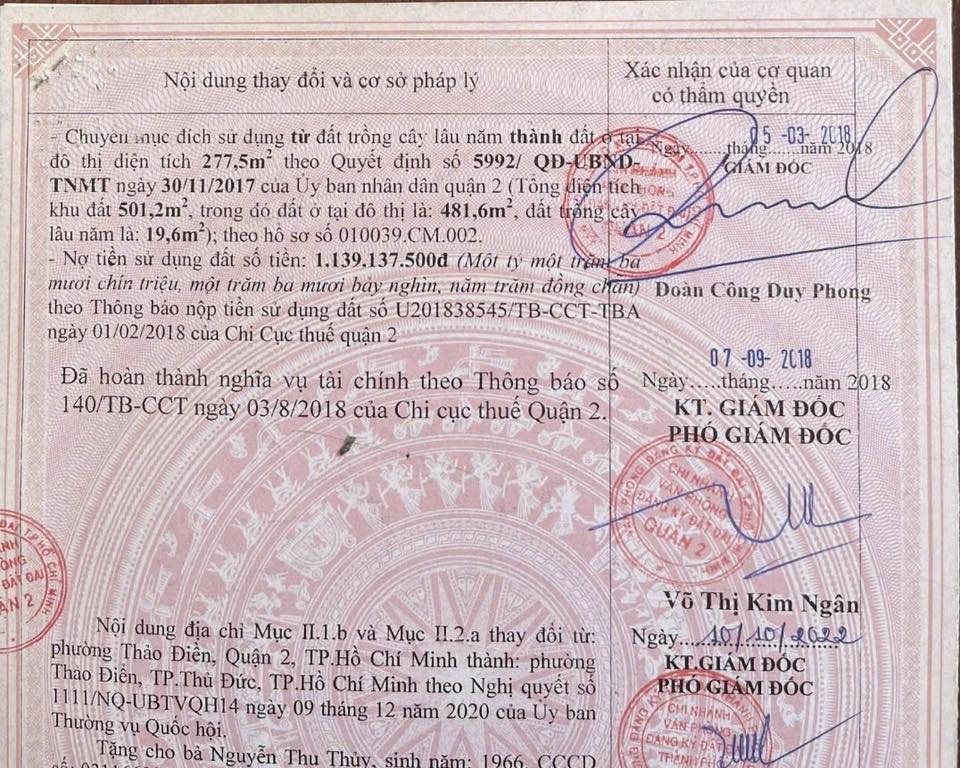 Nội dung thay đổi và cơ sở pháp lý
Xác nhận của cơ quan
có thẩm quyền
- Chuyển mục đích sử dụng từ đất trồng cây lâu năm thành đất ở tại
đô thị diện tích 277,5m² theo Quyết định số 5992/ QĐ-UBND-
TNMT ngày 30/11/2017 của Ủy ban nhân dân quận 2 (Tổng diện tích
khu đất 501,2m², trong đó đất ở tại đô thị là: 481,6m², đất trồng cây
lâu năm là: 19,6m²); theo hồ sơ số 010039.CM.002.
- Nợ tiền sử dụng đất số tiền: 1.139.137.500đ (Một tỷ một trăm ba
mươi chín triệu, một trăm ba mươi bảy nghìn, năm trăm đồng chẵn)
theo Thông báo nộp tiền sử dụng đất số U201838545/TB-CCT-TBA
ngày 01/02/2018 của Chi Cục thuế quận 2
05 -03- 2018
Ngày......tháng......năm 2018
GIÁM ĐỐC
Đoàn Công Duy Phong
Đã hoàn thành nghĩa vụ tài chính theo Thông báo số
140/TB-CCT ngày 03/8/2018 của Chi cục thuế Quận 2.
07 -09- 2018
Ngày.....tháng.....năm 2018
KT. GIÁM ĐỐC
PHÓ GIÁM ĐỐC
CHI NHÁNH
VĂN PHÒNG
ĐĂNG KÝ ĐẤT ĐAI
QUẬN 2
Võ Thị Kim Ngân
Nội dung địa chỉ Mục II.1.b và Mục II.2.a thay đổi từ:
phường Thảo Điền, Quận 2, TP.Hồ Chí Minh thành: phường
Thảo Điền, TP.Thủ Đức, TP.Hồ Chí Minh theo Nghị quyết số
1111/NQ-UBTVQH14 ngày 09 tháng 12 năm 2020 của Ủy ban
Thường vụ Quốc hội.
Tặng cho bà Nguyễn Thu Thủy, sinh năm: 1966, CCCD
Ngày....10/10/2022
KT.GIÁM ĐỐC
PHÓ GIÁM ĐỐC
CHI NHÁNH
VĂN PHÒNG
ĐĂNG KÝ ĐẤT